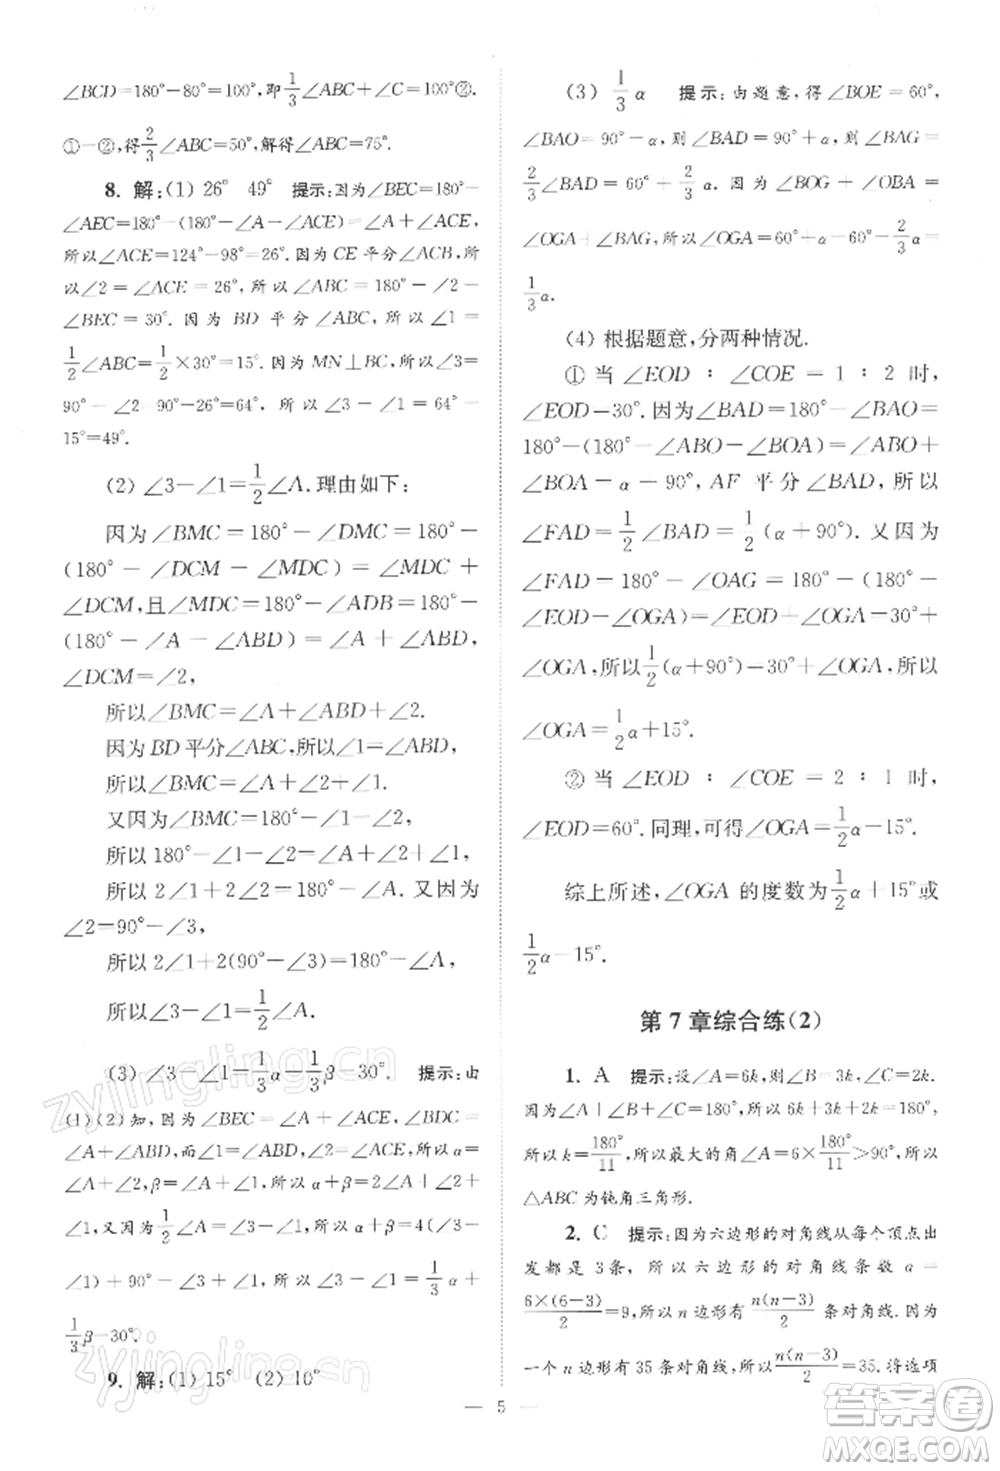 ∠BCD=180°-80°=100°,即1/3∠ABC+∠C=100°②.
①-②,得2/3∠ABC=50°,解得∠ABC=75°.
8. 解:(1) 26° 49° 提示:因为∠BEC=180°-
∠AEC=180°-(180°-∠A-∠ACE)=∠A+∠ACE,
所以∠ACE=124°-98°=26°.因为CE平分∠ACB,所
以∠2=∠ACE=26°,所以∠ABC=180°-∠2-
∠BEC=30°.因为BD平分∠ABC,所以∠1=
1/2∠ABC=1/2×30°=15°.因为MN⊥BC,所以∠3=
90°-∠2 90°-26°=64°,所以∠3-∠1=64°-
15°=49°.
(2) ∠3-∠1=1/2∠A.理由如下:
因为∠BMC=180°-∠DMC=180°-
(180°-∠DCM-∠MDC)=∠MDC+
∠DCM,且∠MDC=180°-∠ADB=180°-
(180°-∠A-∠ABD)=∠A+∠ABD,
∠DCM=∠2,
所以∠BMC=∠A+∠ABD+∠2.
因为BD平分∠ABC,所以∠1=∠ABD,
所以∠BMC=∠A+∠2+∠1.
又因为∠BMC=180°-∠1-∠2,
所以180°-∠1-∠2=∠A+∠2+∠1,
所以2∠1+2∠2=180°-∠A.又因为
∠2=90°-∠3,
所以2∠1+2(90°-∠3)=180°-∠A,
所以∠3-∠1=1/2∠A.
(3) ∠3-∠1=1/3α-1/3β-30°. 提示:由
(1)(2)知,∠BEC=∠A+∠ACE,∠BDC=
∠A+∠ABD,所以α=∠1+∠ABD,所以α=
∠A+∠2,β=∠A+∠1,所以α-β=∠2-
∠1,α+β=
∠1)+90°-∠3+∠3,所以∠3-∠1=1/3α-
1/3β-30°.
9. 解:(1) 15° (2) 10°
(3) 1/3α 提示:由题意,得∠BOE=60°,
∠BAO=90°-α,则∠BAD=90°+α,则∠BAG=
2/3∠BAD=60°+2/3α.因为∠BOG+∠OBA=
∠OGA+∠BAG,所以∠OGA=60°+α-60°-2/3α=
1/3α.
(4) 根据题意,分两种情况.
① 当∠EOD:∠COE=1:2时,
∠EOD-30°.因为∠BAD=180°-∠BAO=
180°-(180°-∠ABO-∠BOA)=∠ABO+
∠BOA-α-90°,AF平分∠BAD,所以
∠FAD=1/2∠BAD=1/2(α+90°).又因为
∠FAD=180°-∠OAG=180°-(180°-
∠EOD-∠OGA)=∠EOD+∠OGA-30°+
∠OGA,所以1/2(α+90°)-30°+∠OGA,所以
∠OGA=1/2α+15°.
② 当∠EOD:∠COE=2:1时,
∠EOD=60°.同理,可得∠OGA=1/2α-15°.
综上所述,∠OGA的度数为1/2α+15°或
1/2α-15°.
第7章综合练(2)
1. A 提示:设∠A=6k,则∠B=3k,∠C=2k.
因为∠A+∠B+∠C=180°,所以6k+3k+2k=180°,
所以k=180°/11,所以最大的角∠A=6×180°/11>90°,所以
△ABC为钝角三角形.
2. C 提示:因为六边形的对角线从每个顶点出
发都是3条,所以六边形的对角线条数a=
6×(6-3)/2=9,所以n边形有n(n-3)/2条对角线.因为
一个n边形有35条对角线,所以n(n-3)/2=35.将选项
— 5 —
zyjingling.cn
zyjingling.cn
答案圈
MXQE.COM